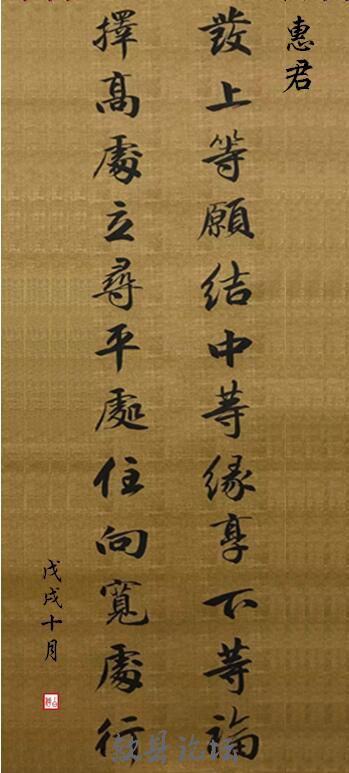 惠君
發上等願結中等緣享下等福
擇高處立尋平處住向寬處行
戊戌十月